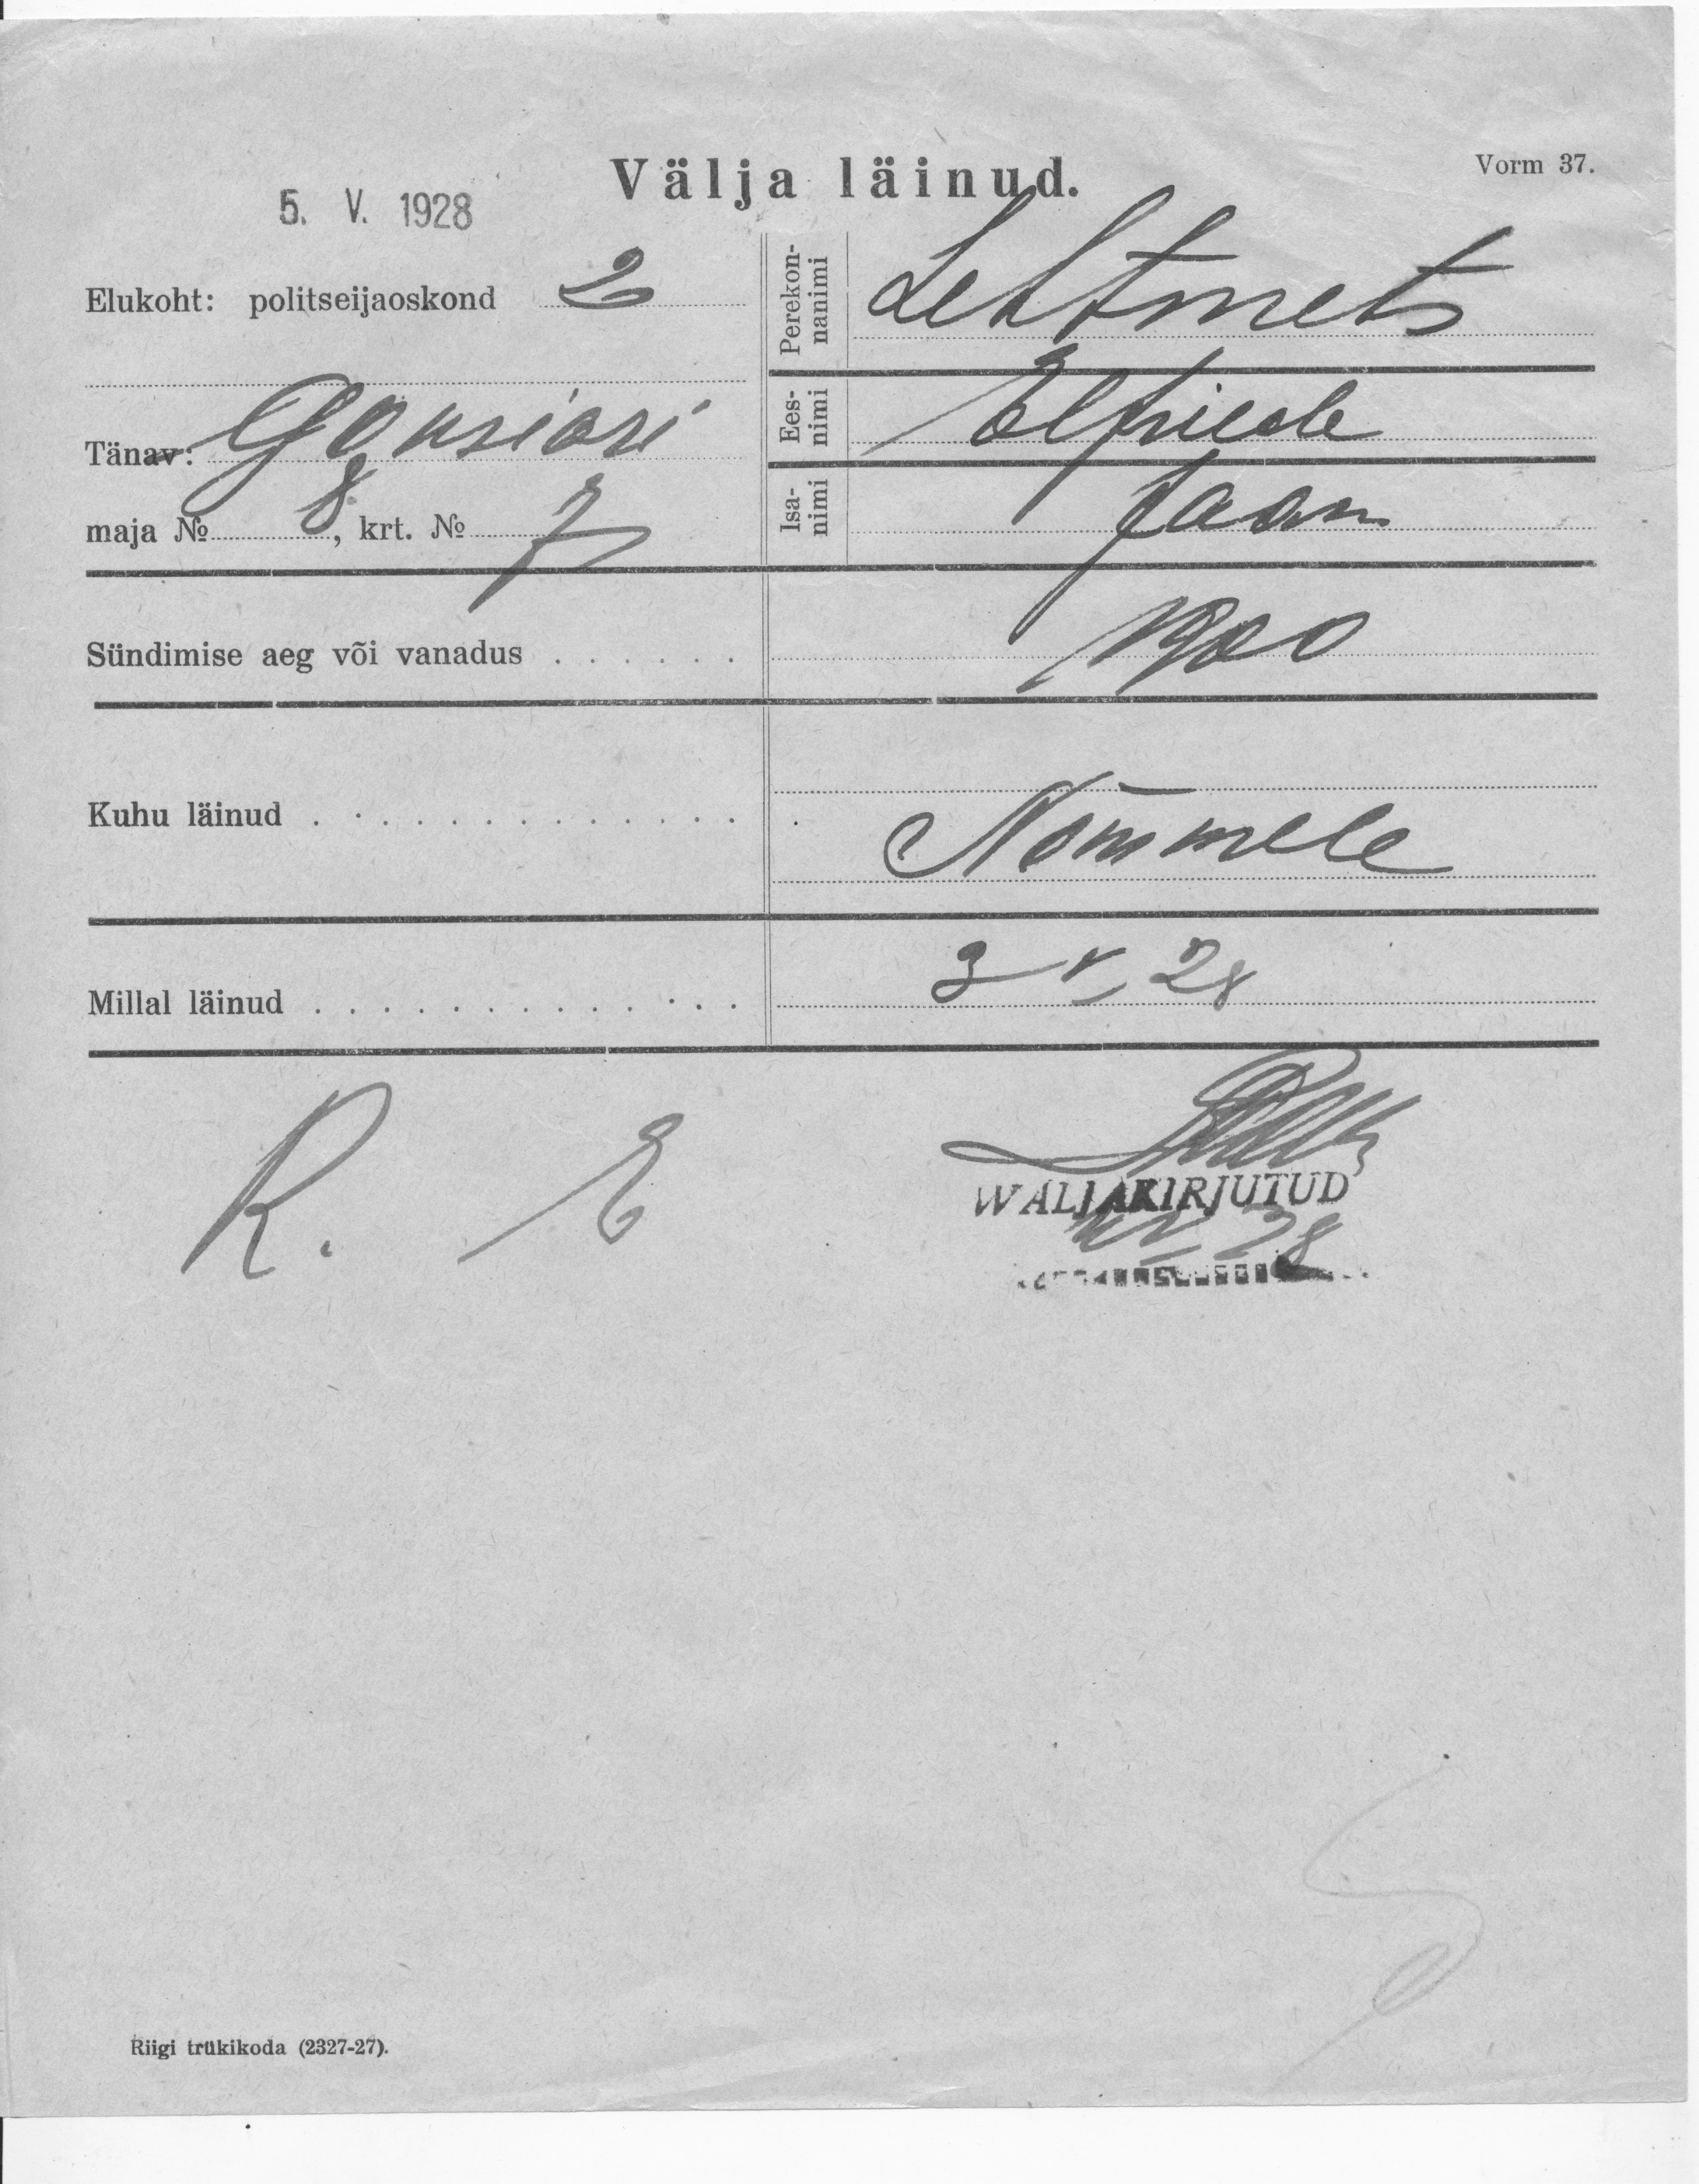 Vorm 37.
Välja läinud.
5. V. 1928
Elukoht: politseijaoskond 2
Tänav: Gonsiori
maja № 8, krt. № 7
Perekon-
nanimi
Lehtmets
Ees-
nimi
Elfriede
Isa-
nimi
Jaan
Sündimise aeg või vanadus . . . . . . 1900
Kuhu läinud . . . . . . . . . . . . . . Nõmmele
Millal läinud . . . . . . . . . . . . . 3 V 28
R. E
WALJAKIRJUTUD
Riigi trükikoda (2327-27).